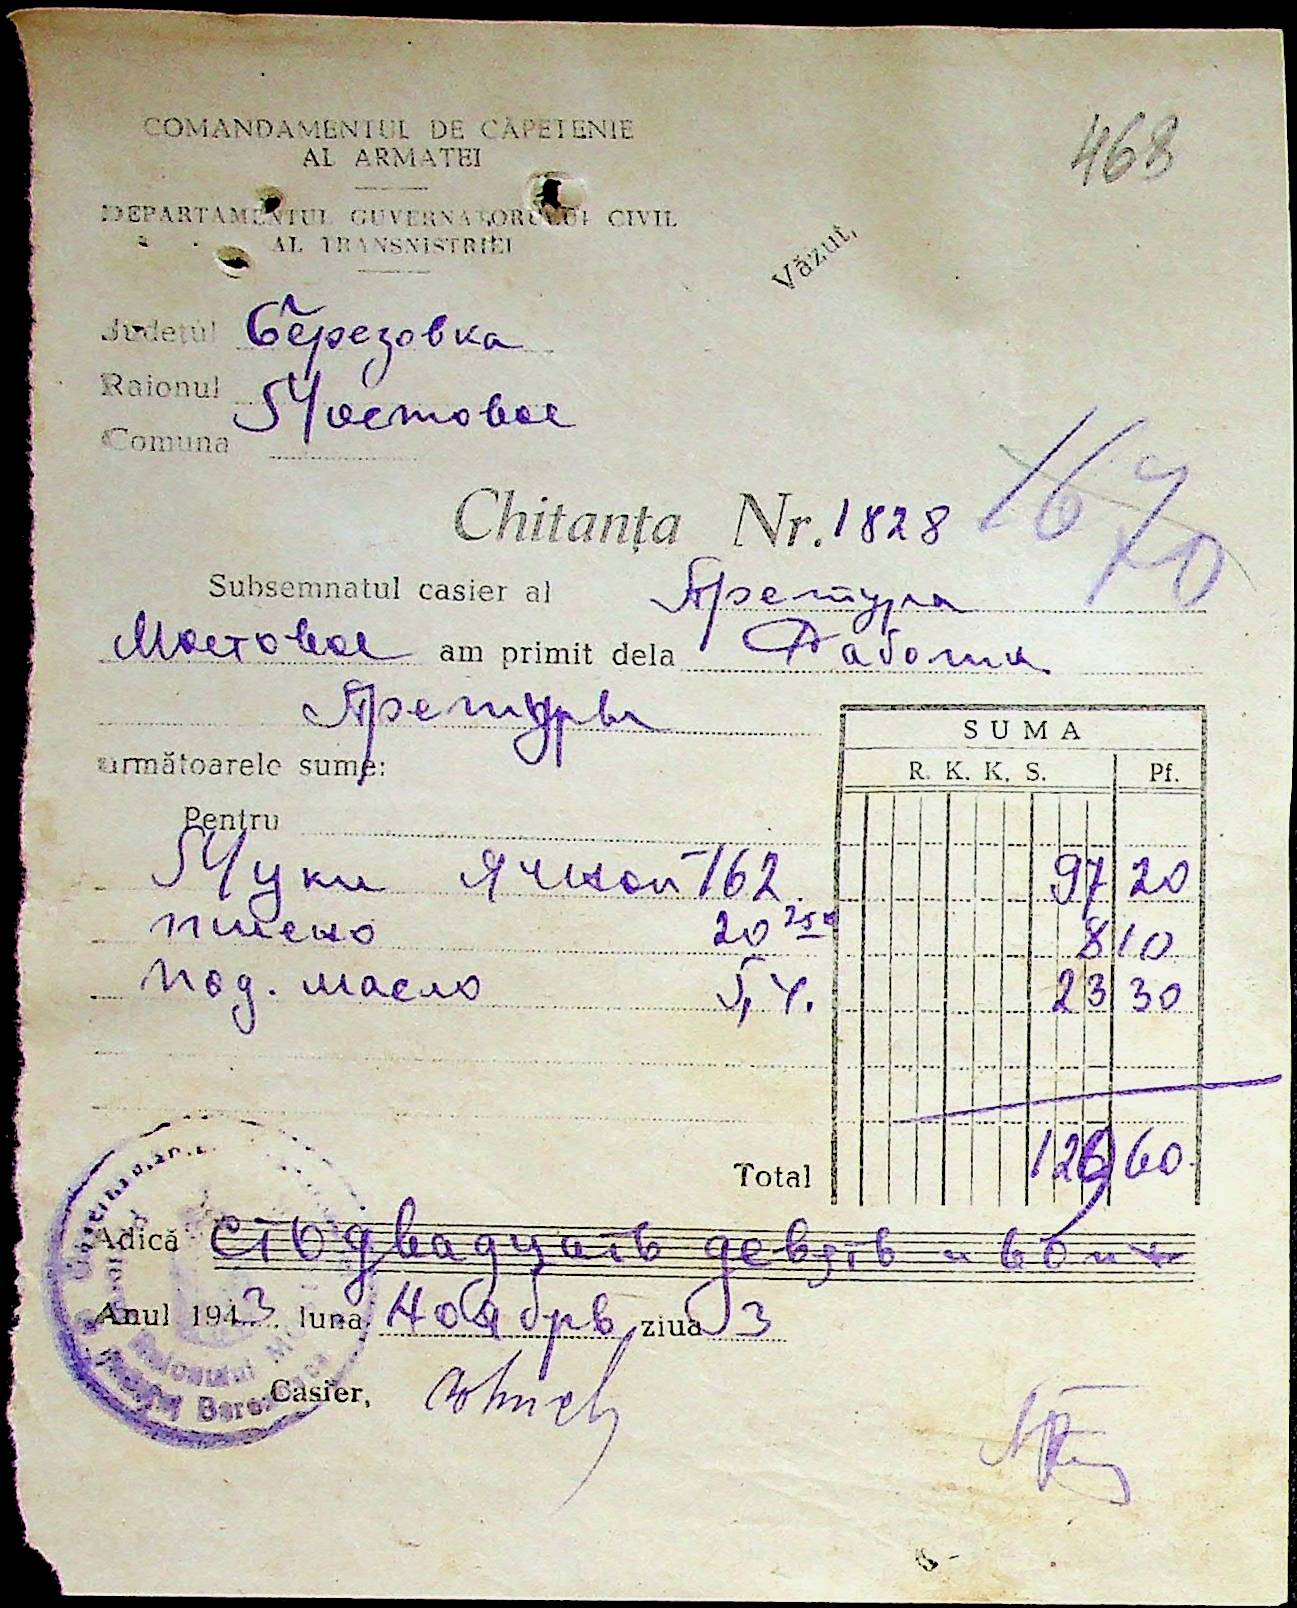 COMANDAMENTUL DE CĂPETENIE
AL ARMATEI
468
DEPARTAMENTUL GUVERNATORULUI CIVIL
AL TRANSNISTRIEI
Văzut,
Județul Березовка
Raionul Мостовое
Comuna
1670
Chitanța Nr. 1828
Subsemnatul casier al Претура
Мостовое am primit dela Работн
Претуры
următoarele sume:
SUMA
R. K. K. S. Pf.
Pentru
Муки ячной - 162 97 20
пшено 20 250 8 10
под. масло 5,4. 23 30
Total 128 60
Adică Сто двадцать девять и 60 пф
Anul 1943 luna Ноябрь ziua 3
Casier,
Raionului